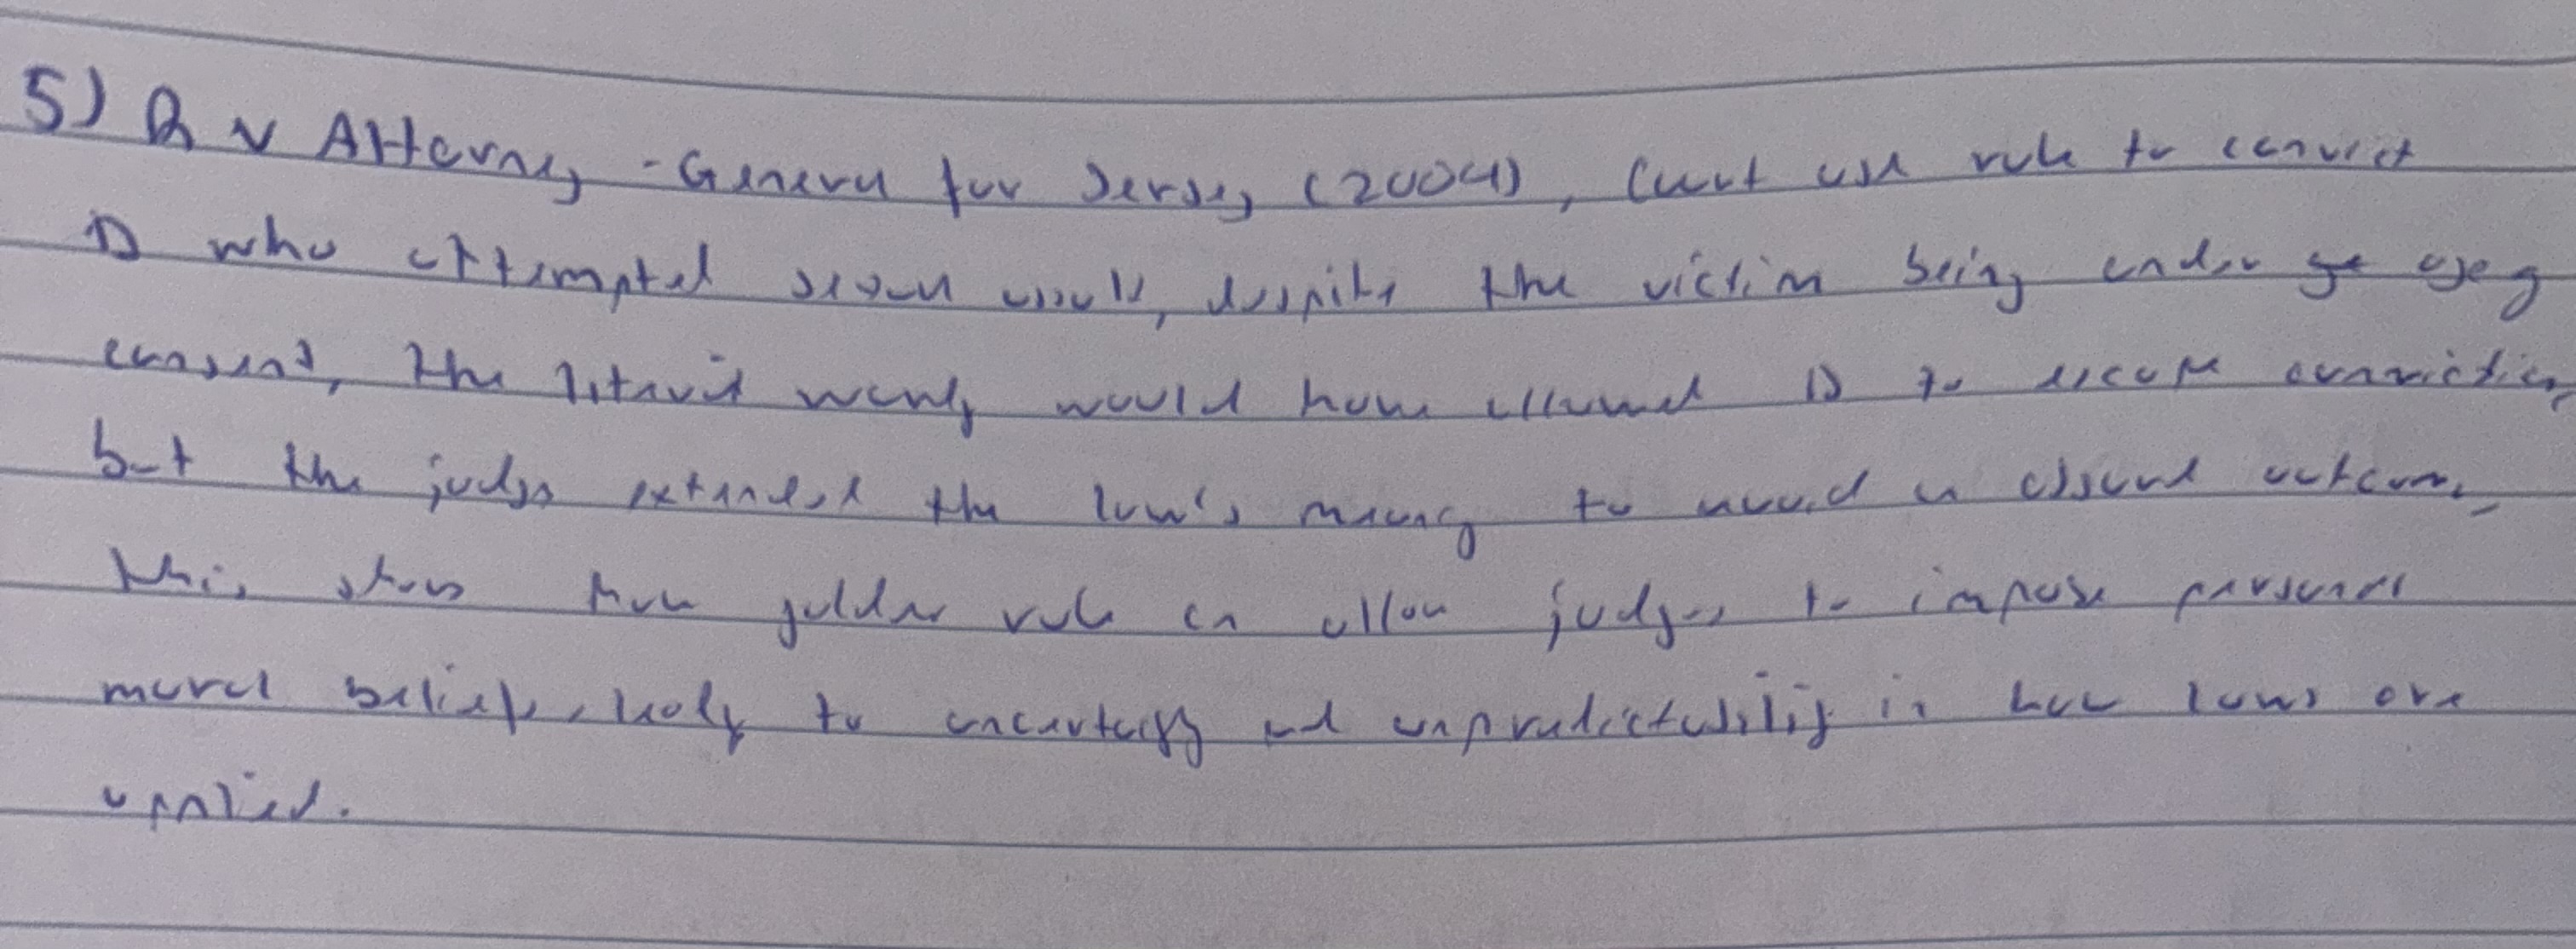 5) R v Attorney-General for Jersey (2004), Court use rule to convict
D who attempted sexual assault, despite the victim being under age of
consent, the literal would have allowed D to escape conviction,
but the judges extended the law's meaning to avoid an absurd outcome,
this shows how golden rule can allow judges to impose personal
moral beliefs, leading to uncertainty and unpredictability in how laws are
applied.